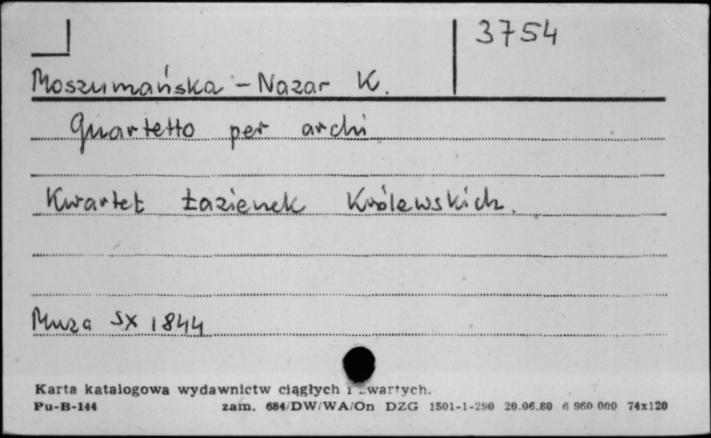 3754
Moszumańska-Nazar K.
Quartetto per archi
Kwartet Łazienek Królewskich.
Muza SX 1844
Karta katalogowa wydawnictw ciągłych i zwartych.
Pu-B-144 zam. 684/DW/WA/On DZG 1501-1-290 20.06.80 6 960 000 74x120